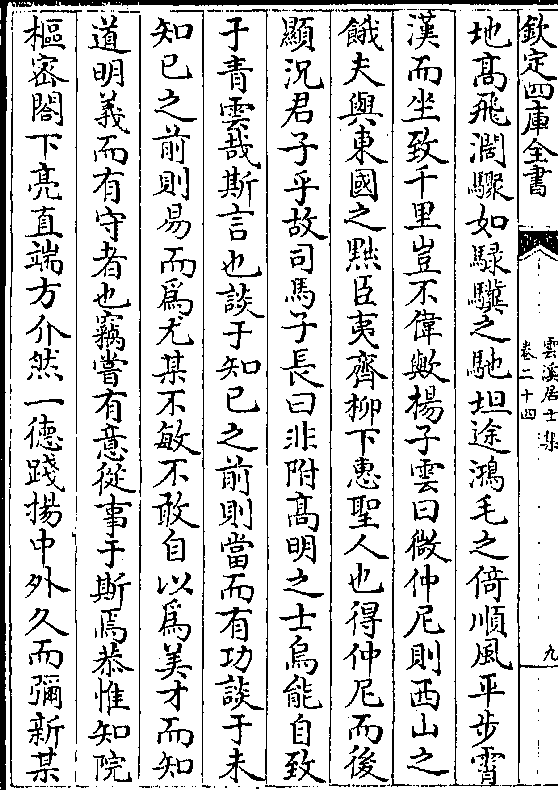 欽定四庫全書
雲溪居士集
卷二十四
九
地高飛濶驟如騄驥之馳坦途鴻毛之倚順風平步霄
漢而坐致千里豈不偉歟揚子雲曰微仲尼則西山之
餓夫與東國之黜臣夷齊柳下惠聖人也得仲尼而後
顯況君子乎故司馬子長曰非附高明之士烏能自致
于青雲哉斯言也談于知已之前則當而有功談于未
知已之前則易而爲尤某不敏不敢自以爲美才而知
道明義而有守者也竊嘗有意從事于斯焉恭惟知院
樞密閤下亮直端方介然一德踐揚中外久而彌新某